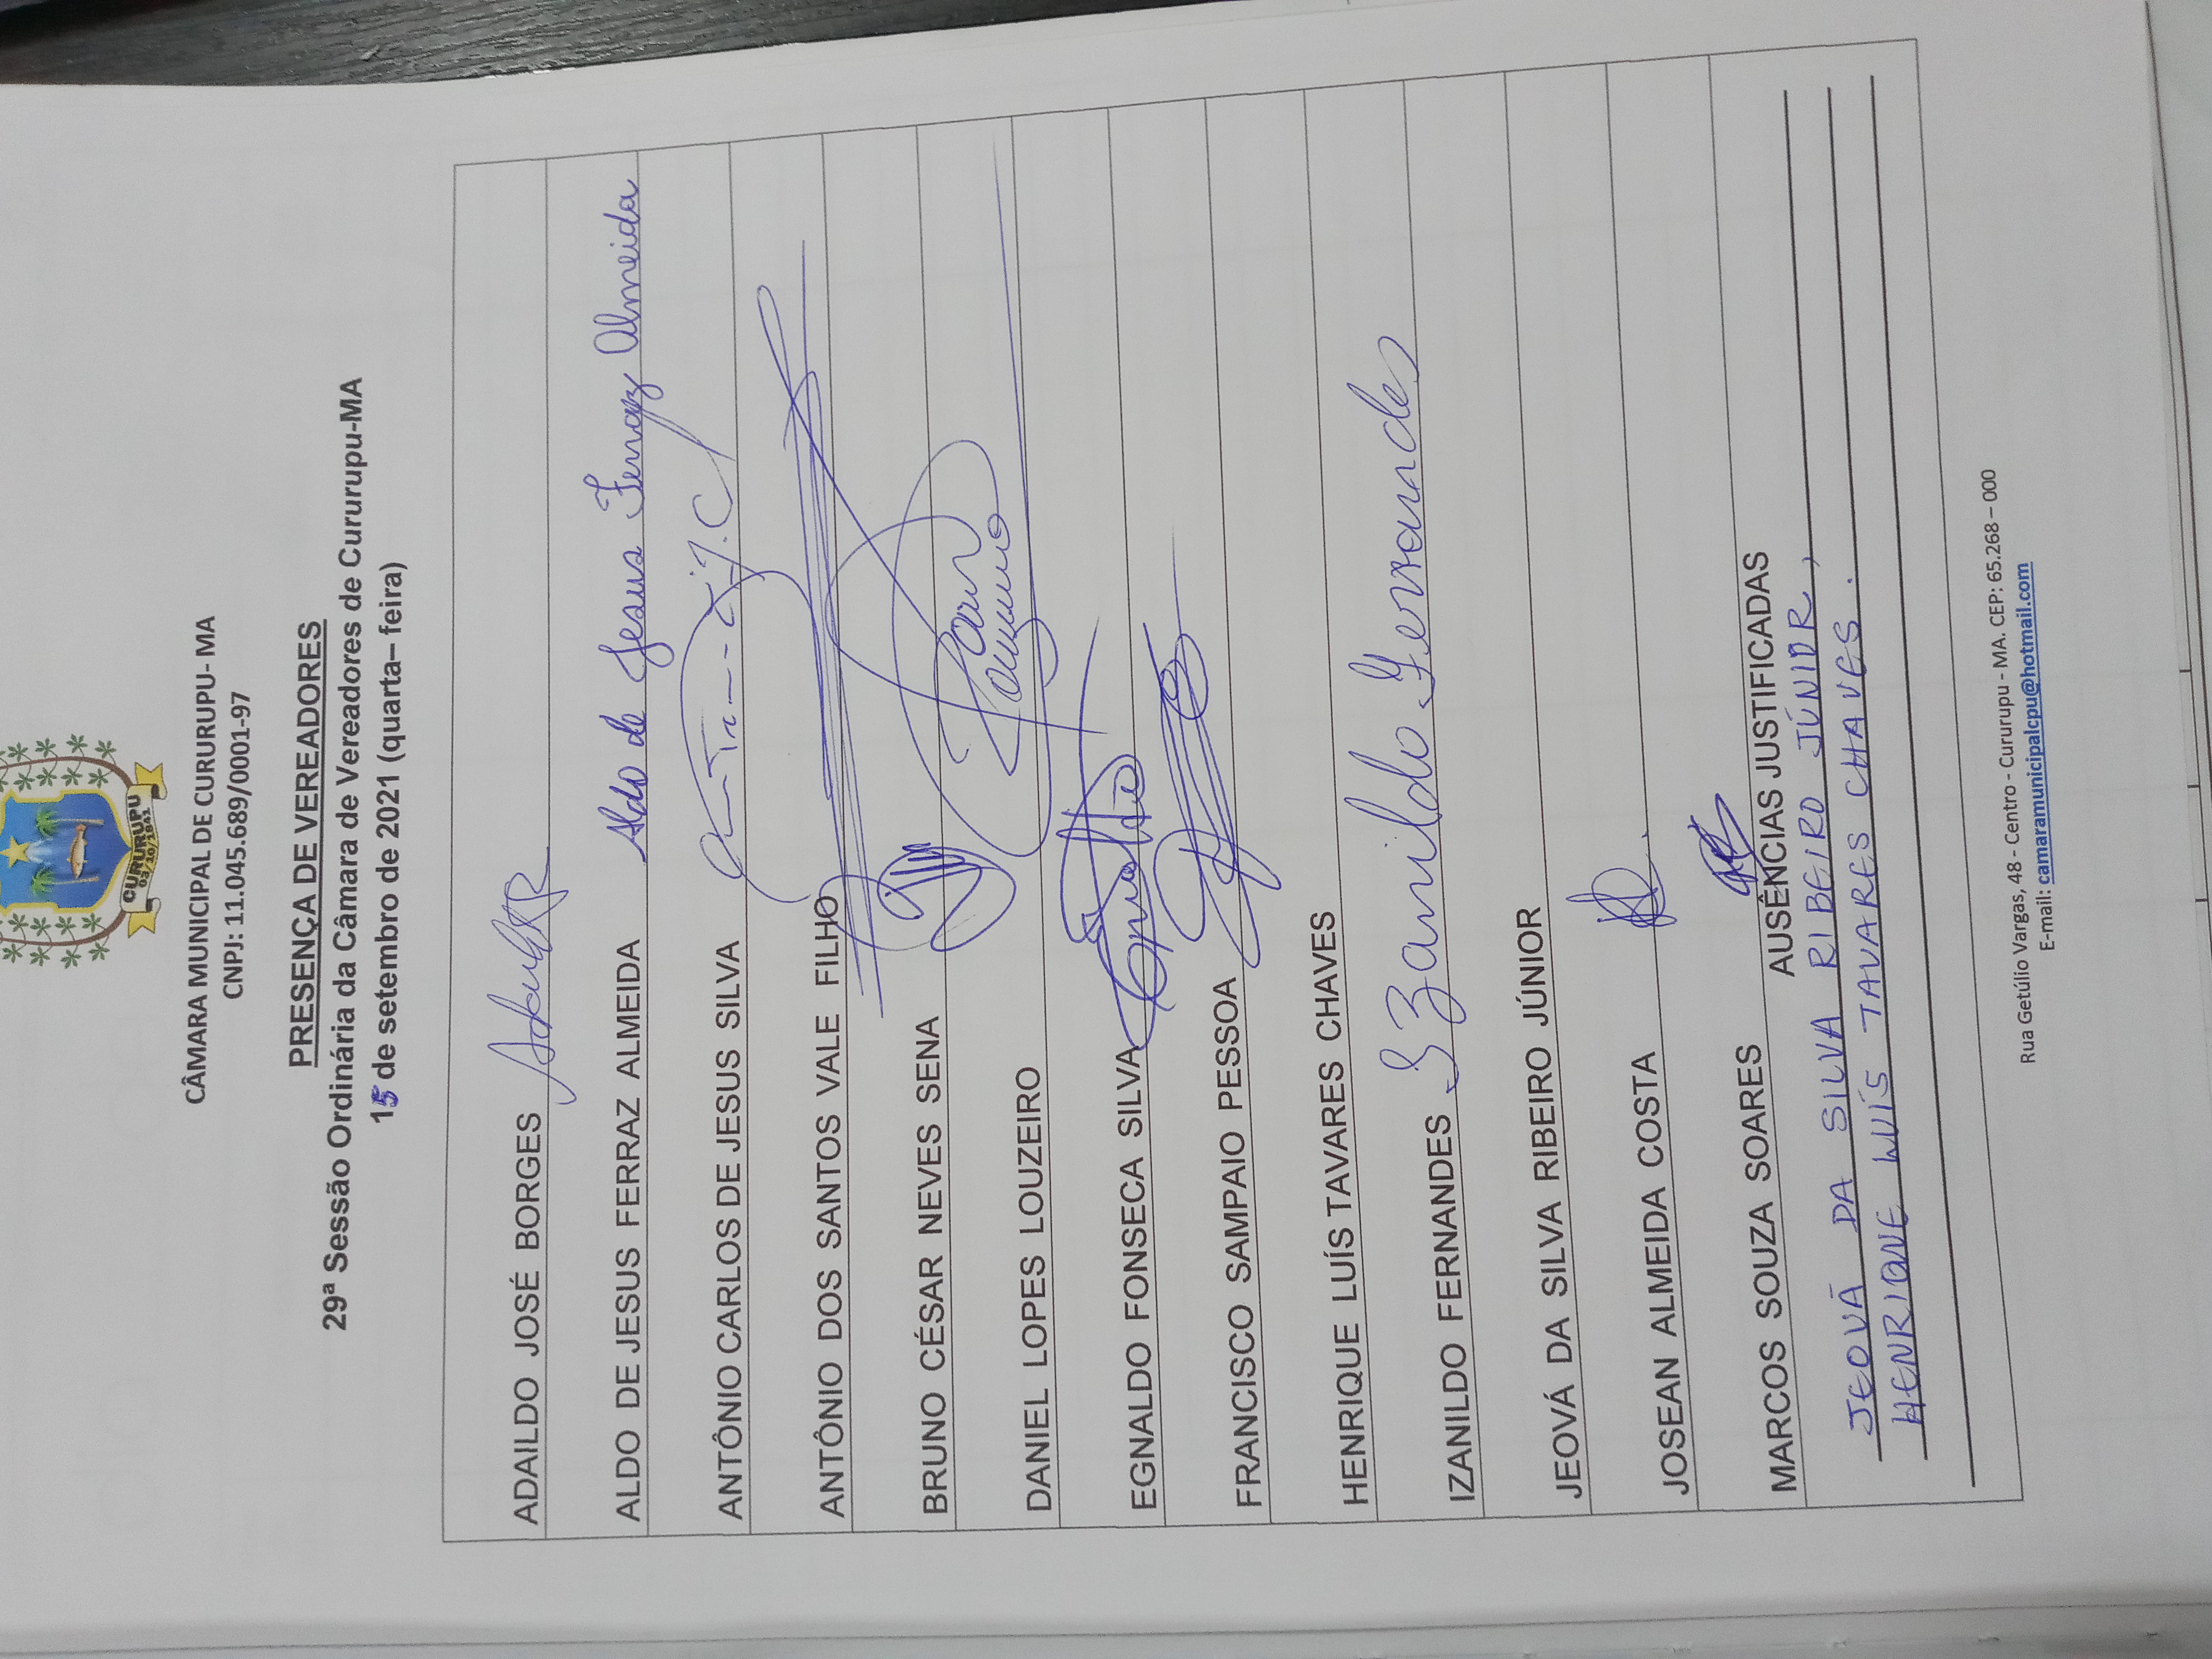 CURURUPU
03/10/1841
CÂMARA MUNICIPAL DE CURURUPU- MA
CNPJ: 11.045.689/0001-97
PRESENÇA DE VEREADORES
29ª Sessão Ordinária da Câmara de Vereadores de Cururupu-MA
15 de setembro de 2021 (quarta– feira)
ADAILDO JOSÉ BORGES
ALDO DE JESUS FERRAZ ALMEIDA Aldo de Jesus Ferraz Almeida
ANTÔNIO CARLOS DE JESUS SILVA
ANTÔNIO DOS SANTOS VALE FILHO
BRUNO CÉSAR NEVES SENA
DANIEL LOPES LOUZEIRO
EGNALDO FONSECA SILVA
FRANCISCO SAMPAIO PESSOA
HENRIQUE LUÍS TAVARES CHAVES
IZANILDO FERNANDES Izanildo Fernandes
JEOVÁ DA SILVA RIBEIRO JÚNIOR
JOSEAN ALMEIDA COSTA
MARCOS SOUZA SOARES
AUSÊNCIAS JUSTIFICADAS
JEOVÁ DA SILVA RIBEIRO JÚNIOR,
HENRIQUE LUÍS TAVARES CHAVES.
Rua Getúlio Vargas, 48 - Centro - Cururupu - MA. CEP: 65.268 – 000
E-mail: camaramunicipalcpu@hotmail.com